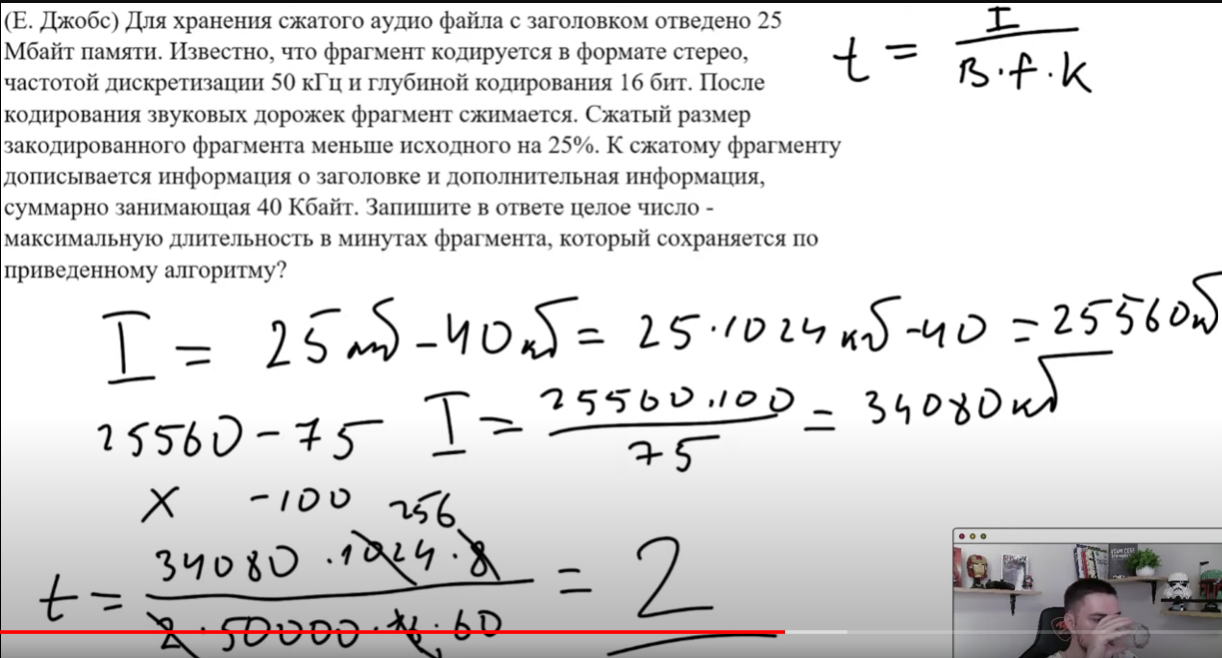 (Е. Джобс) Для хранения сжатого аудио файла с заголовком отведено 25
Мбайт памяти. Известно, что фрагмент кодируется в формате стерео,
частотой дискретизации 50 кГц и глубиной кодирования 16 бит. После
кодирования звуковых дорожек фрагмент сжимается. Сжатый размер
закодированного фрагмента меньше исходного на 25%. К сжатому фрагменту
дописывается информация о заголовке и дополнительная информация,
суммарно занимающая 40 Кбайт. Запишите в ответе целое число -
максимальную длительность в минутах фрагмента, который сохраняется по
приведенному алгоритму?
t = I / B·f·k
I = 25 мб - 40 кб = 25·1024 кб - 40 = 25560 кб
25560 - 75 I = 25560·100 / 75 = 34080 кб
x - 100
256
t = 34080·1024·8 / 2·50000·16·60 = 2